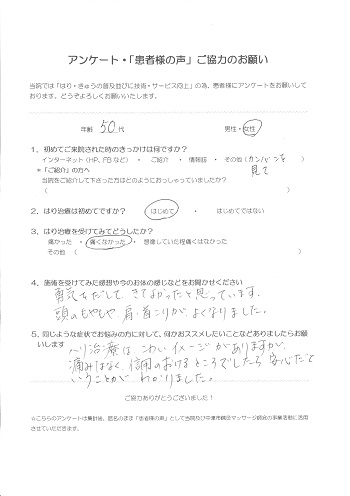 アンケート・「患者様の声」ご協力のお願い
当院では「はり・きゅうの普及並びに技術・サービス向上」の為、患者様にアンケートをお願いして
おります。どうぞよろしくお願いいたします。
年齢 50 代 男性・女性
1、初めてご来院された時のきっかけは何ですか?
インターネット(HP、FBなど) ・ ご紹介 ・ 情報誌 ・ その他(カンバンを
見て
*「ご紹介」の方へ
当院をご紹介して下さった方はどのようにおっしゃっていましたか?
( )
2、はり治療は初めてですか? はじめて ・ はじめてではない
3、はり治療を受けてみてどうしたか?
痛かった ・ 痛くなかった ・ 想像していた程痛くはなかった
その他 ( )
4、施術を受けてみた感想や今のお体の感じなどをお聞かせください
勇気をだして、きてよかったと思っています。
頭のもやもや 肩・首こりが、よくなりました。
5、同じような症状でお悩みの方に対して、何かおススメしたいことなどありましたらお願
いします
ハリ治療は、こわいイメージがありますが、
痛みはなく、信用のおけるところでしたら 安心だと
いうことが わかりました。
ご協力ありがとうございました!
☆こちらのアンケートは集計後、匿名のまま「患者様の声」として当院及び中津市鍼灸マッサージ師会の事業活動に活用
させていただきます。